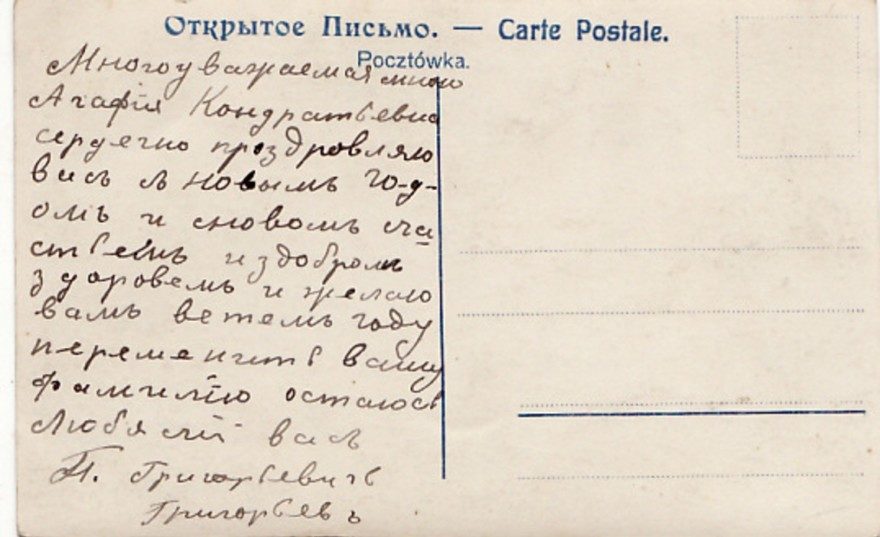 Открытое Письмо. — Carte Postale.
Pocztówka.
Многоуважаемая мною
Агафія Кондратьевна
сердечно проздровляю
васъ съ новымъ 10-д-
омъ и сновомъ сча
стьемъ и здобромъ
здоровемъ и желаю
вамъ ветемъ году
переменить вашу
фамилію остаюсь
Любящій васъ
П. Григорьевичъ
Григорьевъ